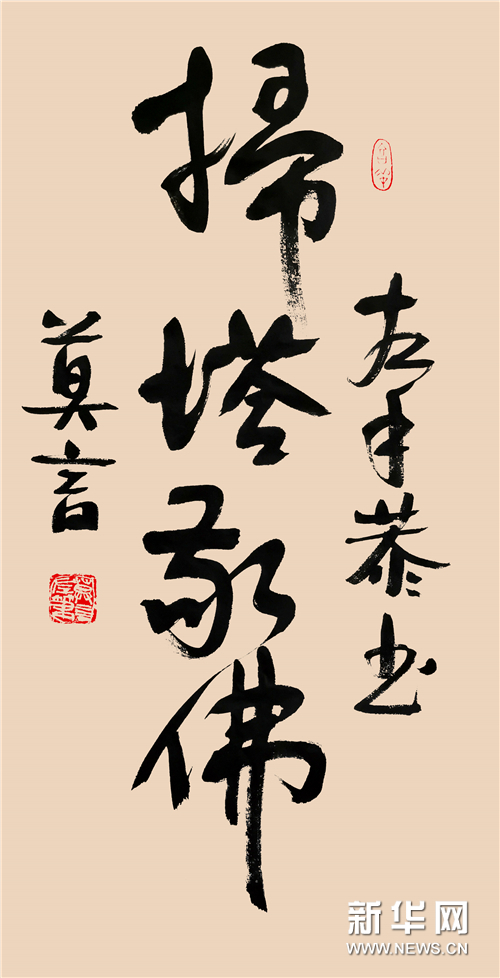 掃塔敬佛
左手恭书
莫言
新华网
WWW.NEWS.CN